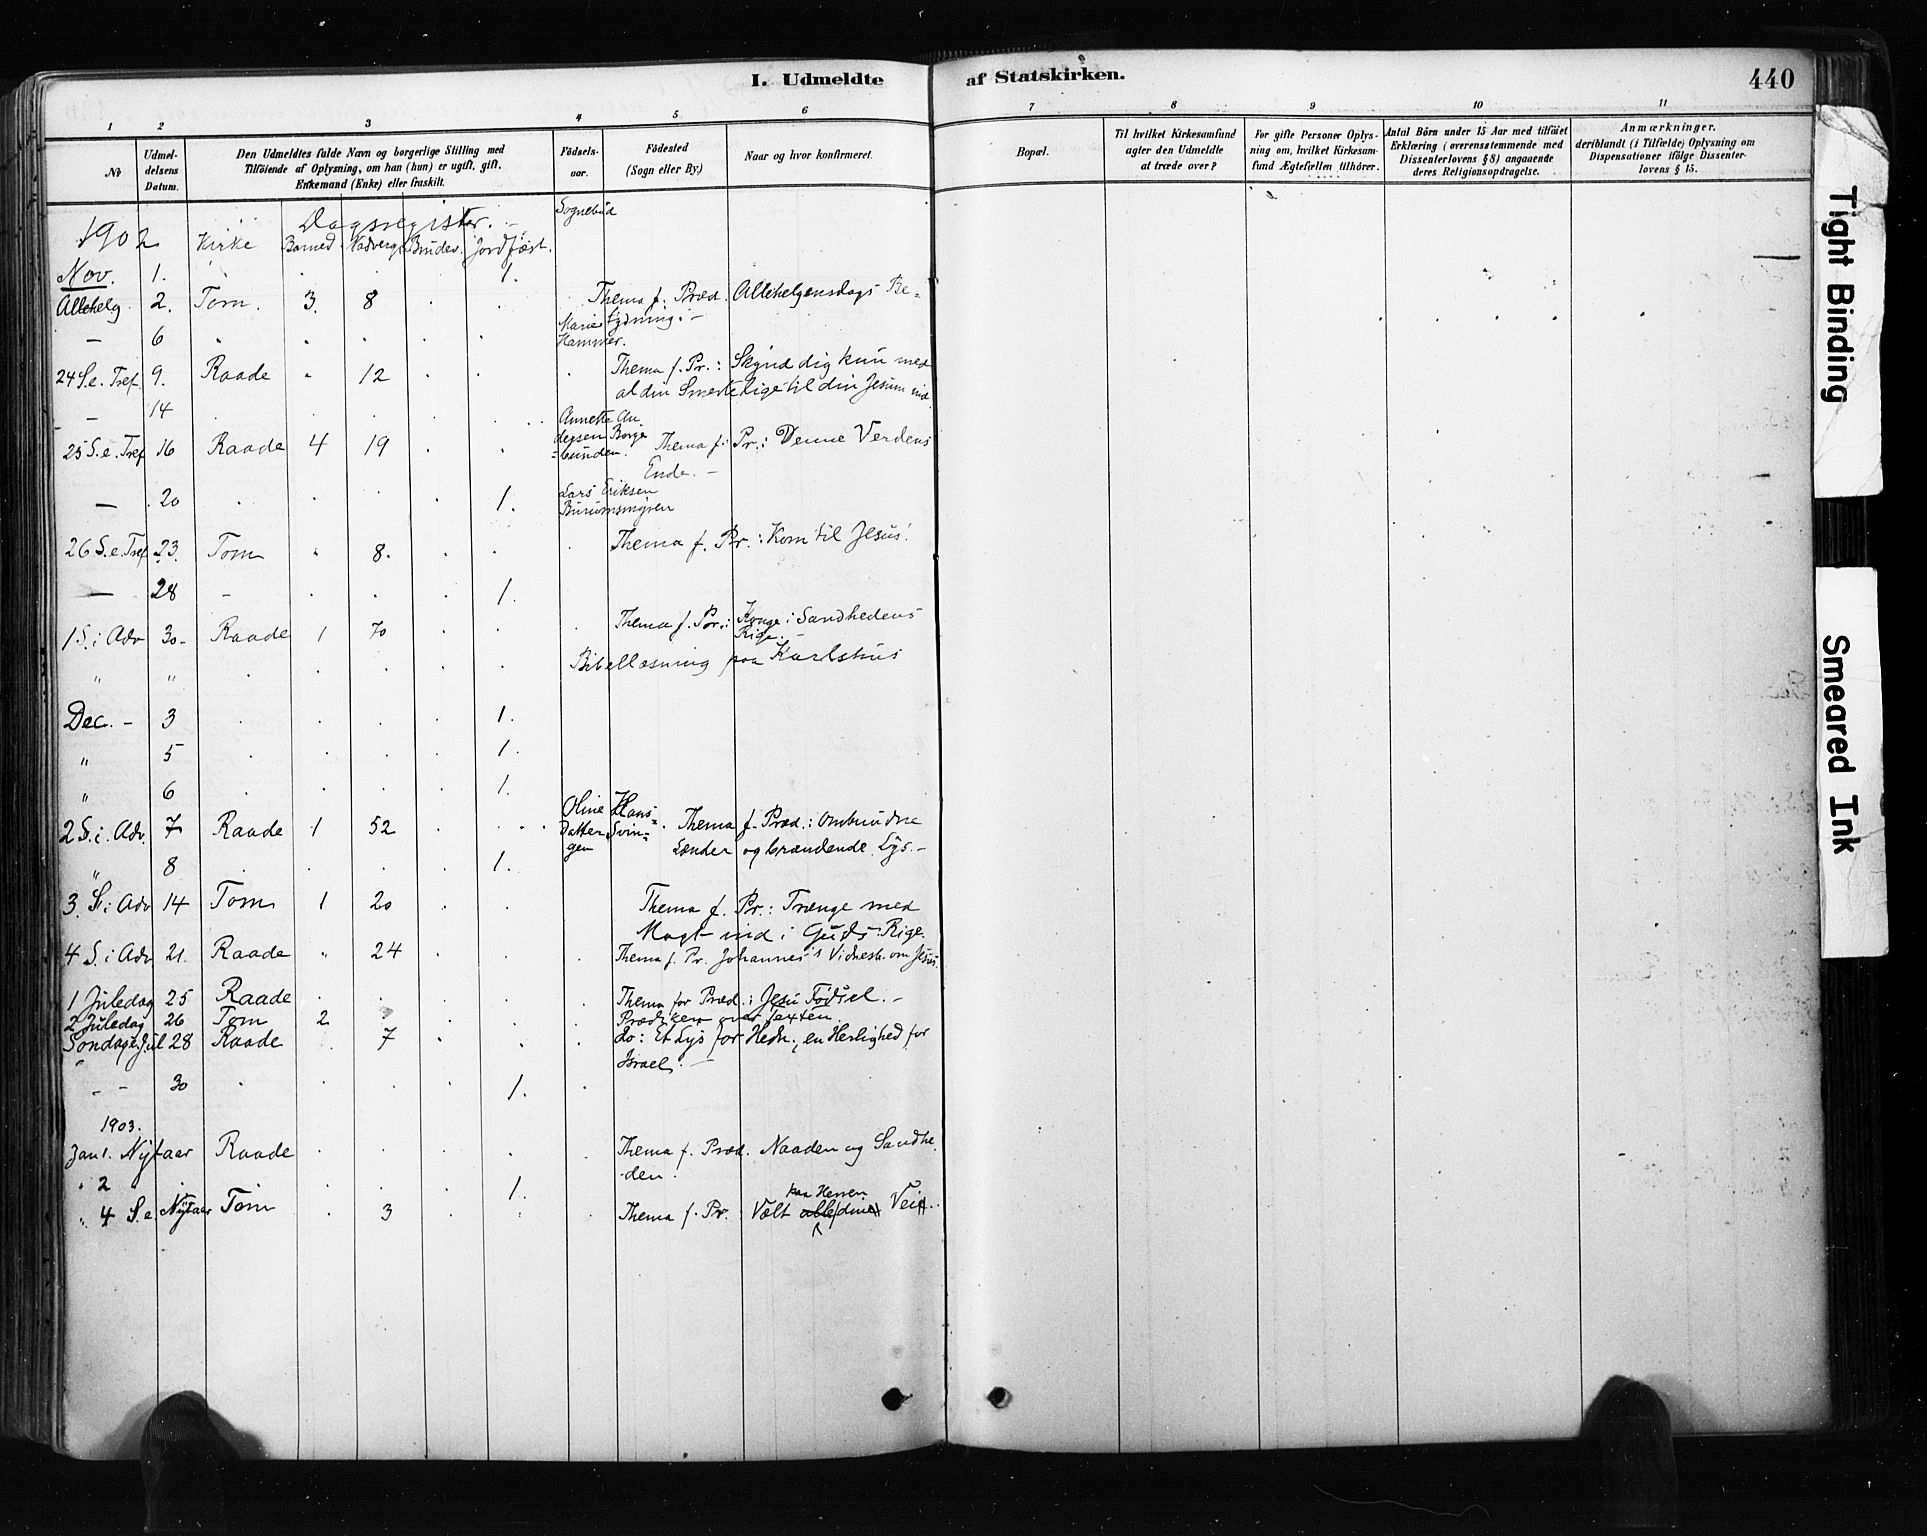 I. Udmeldte af Statskirken.
440
1 2 3 4 5 6 7 8 9 10 11
No
Udmel-
delsens
Datum.
Den Udmeldtes fulde Navn og borgerlige Stilling med
Tilföiende af Oplysning, om han (hun) er ugift, gift,
Enkemand (Enke) eller fraskilt.
Födsels-
aar.
Födested
(Sogn eller By.)
Naar og hvor konfirmeret.
Bopæl.
Til hvilket Kirkesamfund
agter den Udmeldte
at træde over?
For gifte Personer Oplys-
ning om, hvilket Kirkesam-
fund Ægtefællen tilhörer.
Antal Börn under 15 Aar med tilföiet
Erklæring (overensstemmende med
Dissenterlovens § 8) angaaende
deres Religionsopdragelse.
Anmærkninger,
deriblandt (i Tilfælde) Oplysning om
Dispensationer ifölge Dissenter-
lovens § 15.
Dagsregister.
Sognebud
1902 Kirke Barned. Nadverg. Brudev. Jordfæst.
Nov. 1. 1.
Allehelg. 2. Tom. 3. 8 Thema f. Præd. Allehelgensdags Be-
tydning.
— 6 Marie
Hammer.
24 S.e. Tref. 9. Raade 12 Thema f. Pr.: Skynd dig kun med
al din Smerte lige til din Jesum ind
— 14
25 S.e. Tref 16 Raade 4 19 Annette An-
dersen Borge
bunden. Thema f. Pr.: Denne Verdens
Ende. —
— 20 1. Lars Eriksen
26 S.e. Tref 23. Tom 8. Thema f. Pr.: Kom til Jesus!
— 28 — 1.
1 S. i Adv 30 Raade 1 70 Thema f. Pr.: Konge i Sandhedens
Rige. —
" " Bibellæsning paa Karlshus
Dec. — 3 1.
" 5 1.
" 6 1.
2 S. i. Adv. 7 Raade 1 52 Oline Hans-
datter Svin-
gen Thema f. Præd.: Ombundne
Lænder og brændende Lys. —
" 8 1.
3. S. i Adv 14 Tom 1 20 Thema f. Pr.: Trænge med
Magt ind i Guds Rige.
4 S. i Adv 21. Raade " 24 Thema f. Pr. Johannes's Vidnesb. om Jesus.
1 Juledag 25 Raade Thema for Præd.: Jesu Födsel. —
2 Juledag 26 Tom 2 Prædiken over Texten.
Søndag e. Jul 28 Raade 7 do: Et Lys for Hedn., en Herlighed for
Israel. —
— — 30 1.
1903.
Jan 1. Nytaar Raade Thema f. Præd. Naaden og Sandhe-
den.
" 2 1.
" 4 S. e. Nytaar Tom 3 Thema f. Pr. Vælt alle dine Vei.
paa Herren
Tight Binding
Smeared Ink